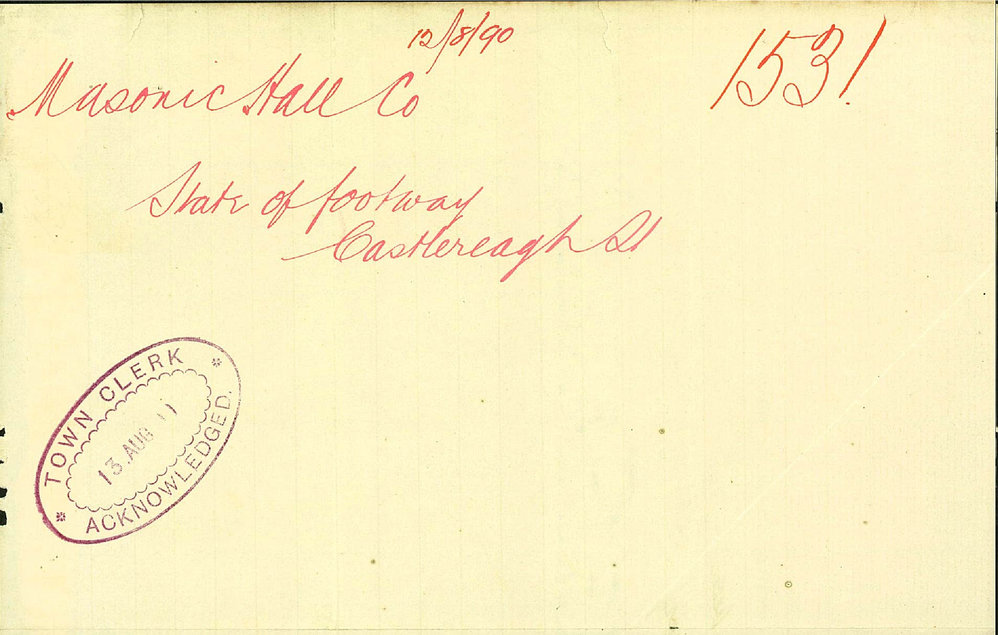 12/8/90
1531.
Masonic Hall Co
State of footway
Castlereagh St
TOWN CLERK
13. AUG
ACKNOWLEDGED.